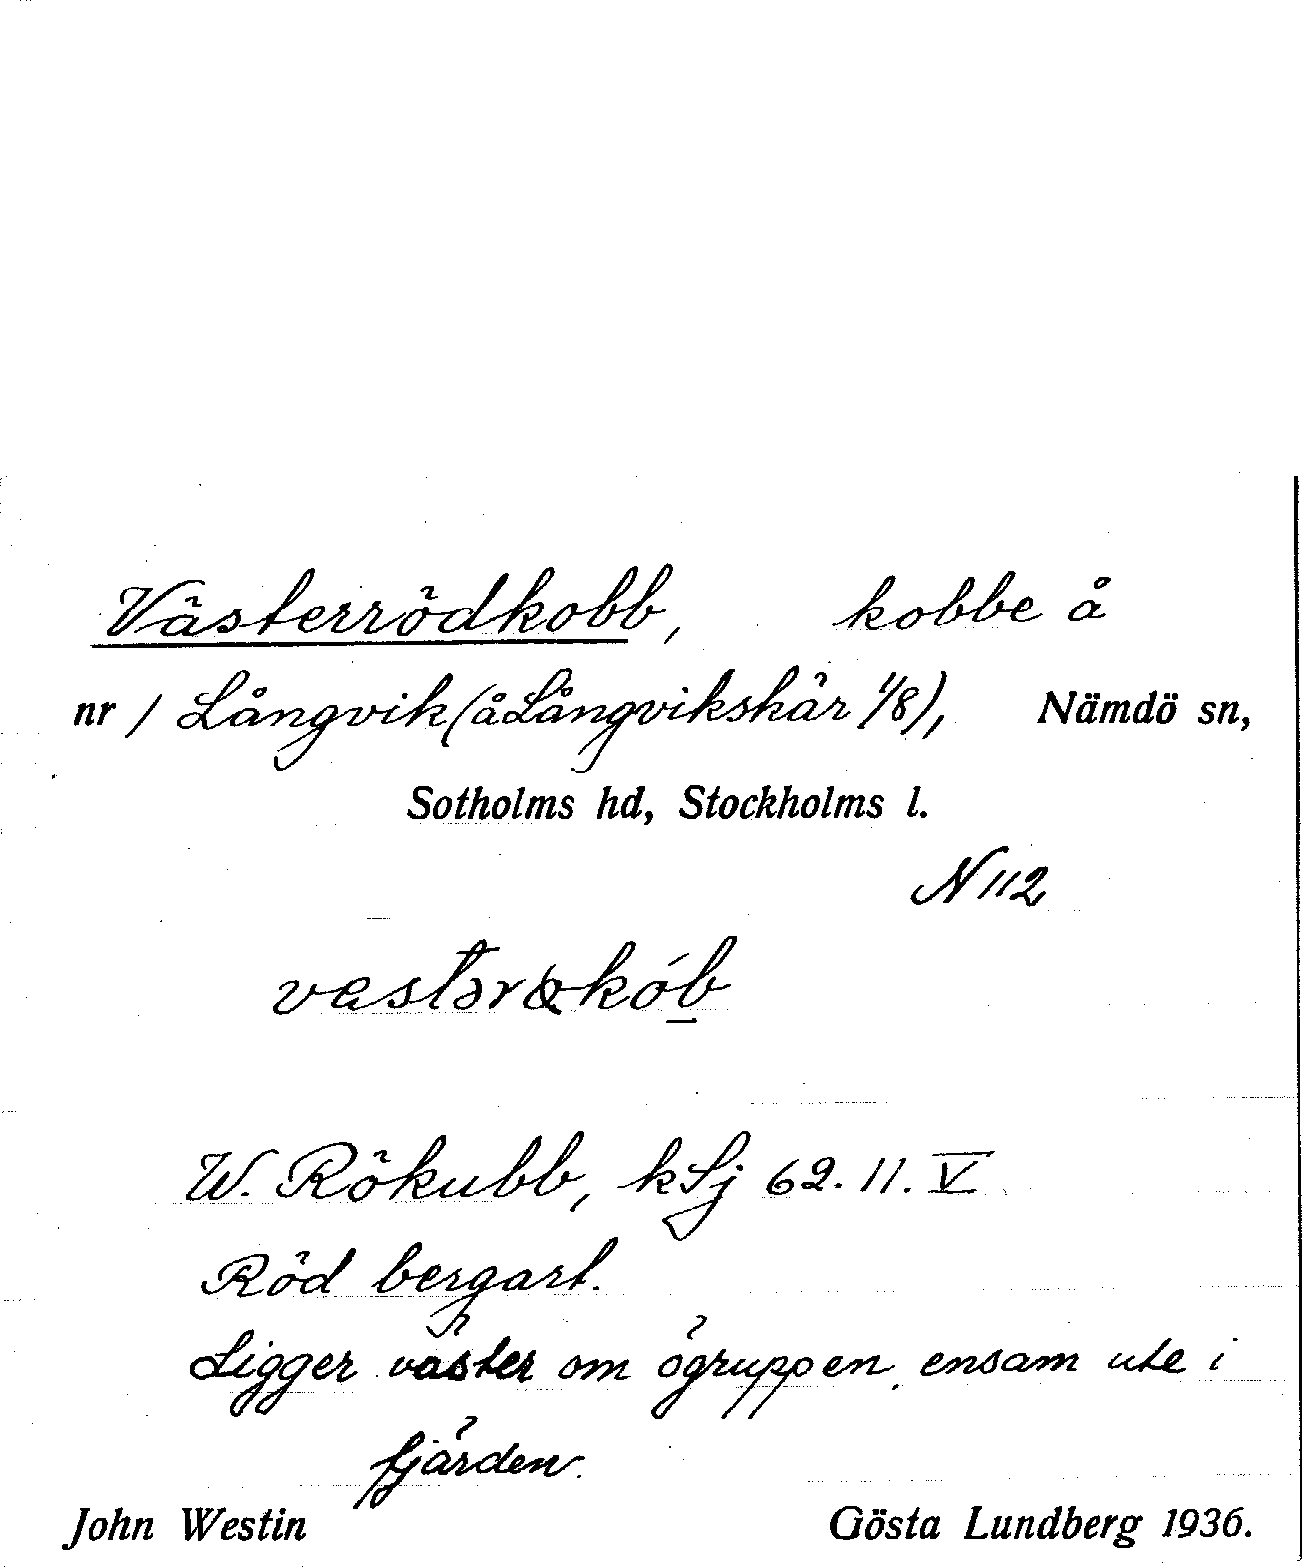 Västerrödkobb, kobbe å
nr / Långvik (å Långvikskär 1/8), Nämdö sn,
Sotholms hd, Stockholms l.
N 112
W. Rökubb, kSj 62. 11. V
Röd bergart.
Ligger väster om ögruppen, ensam ute i
fjärden.
John Westin Gösta Lundberg 1936.